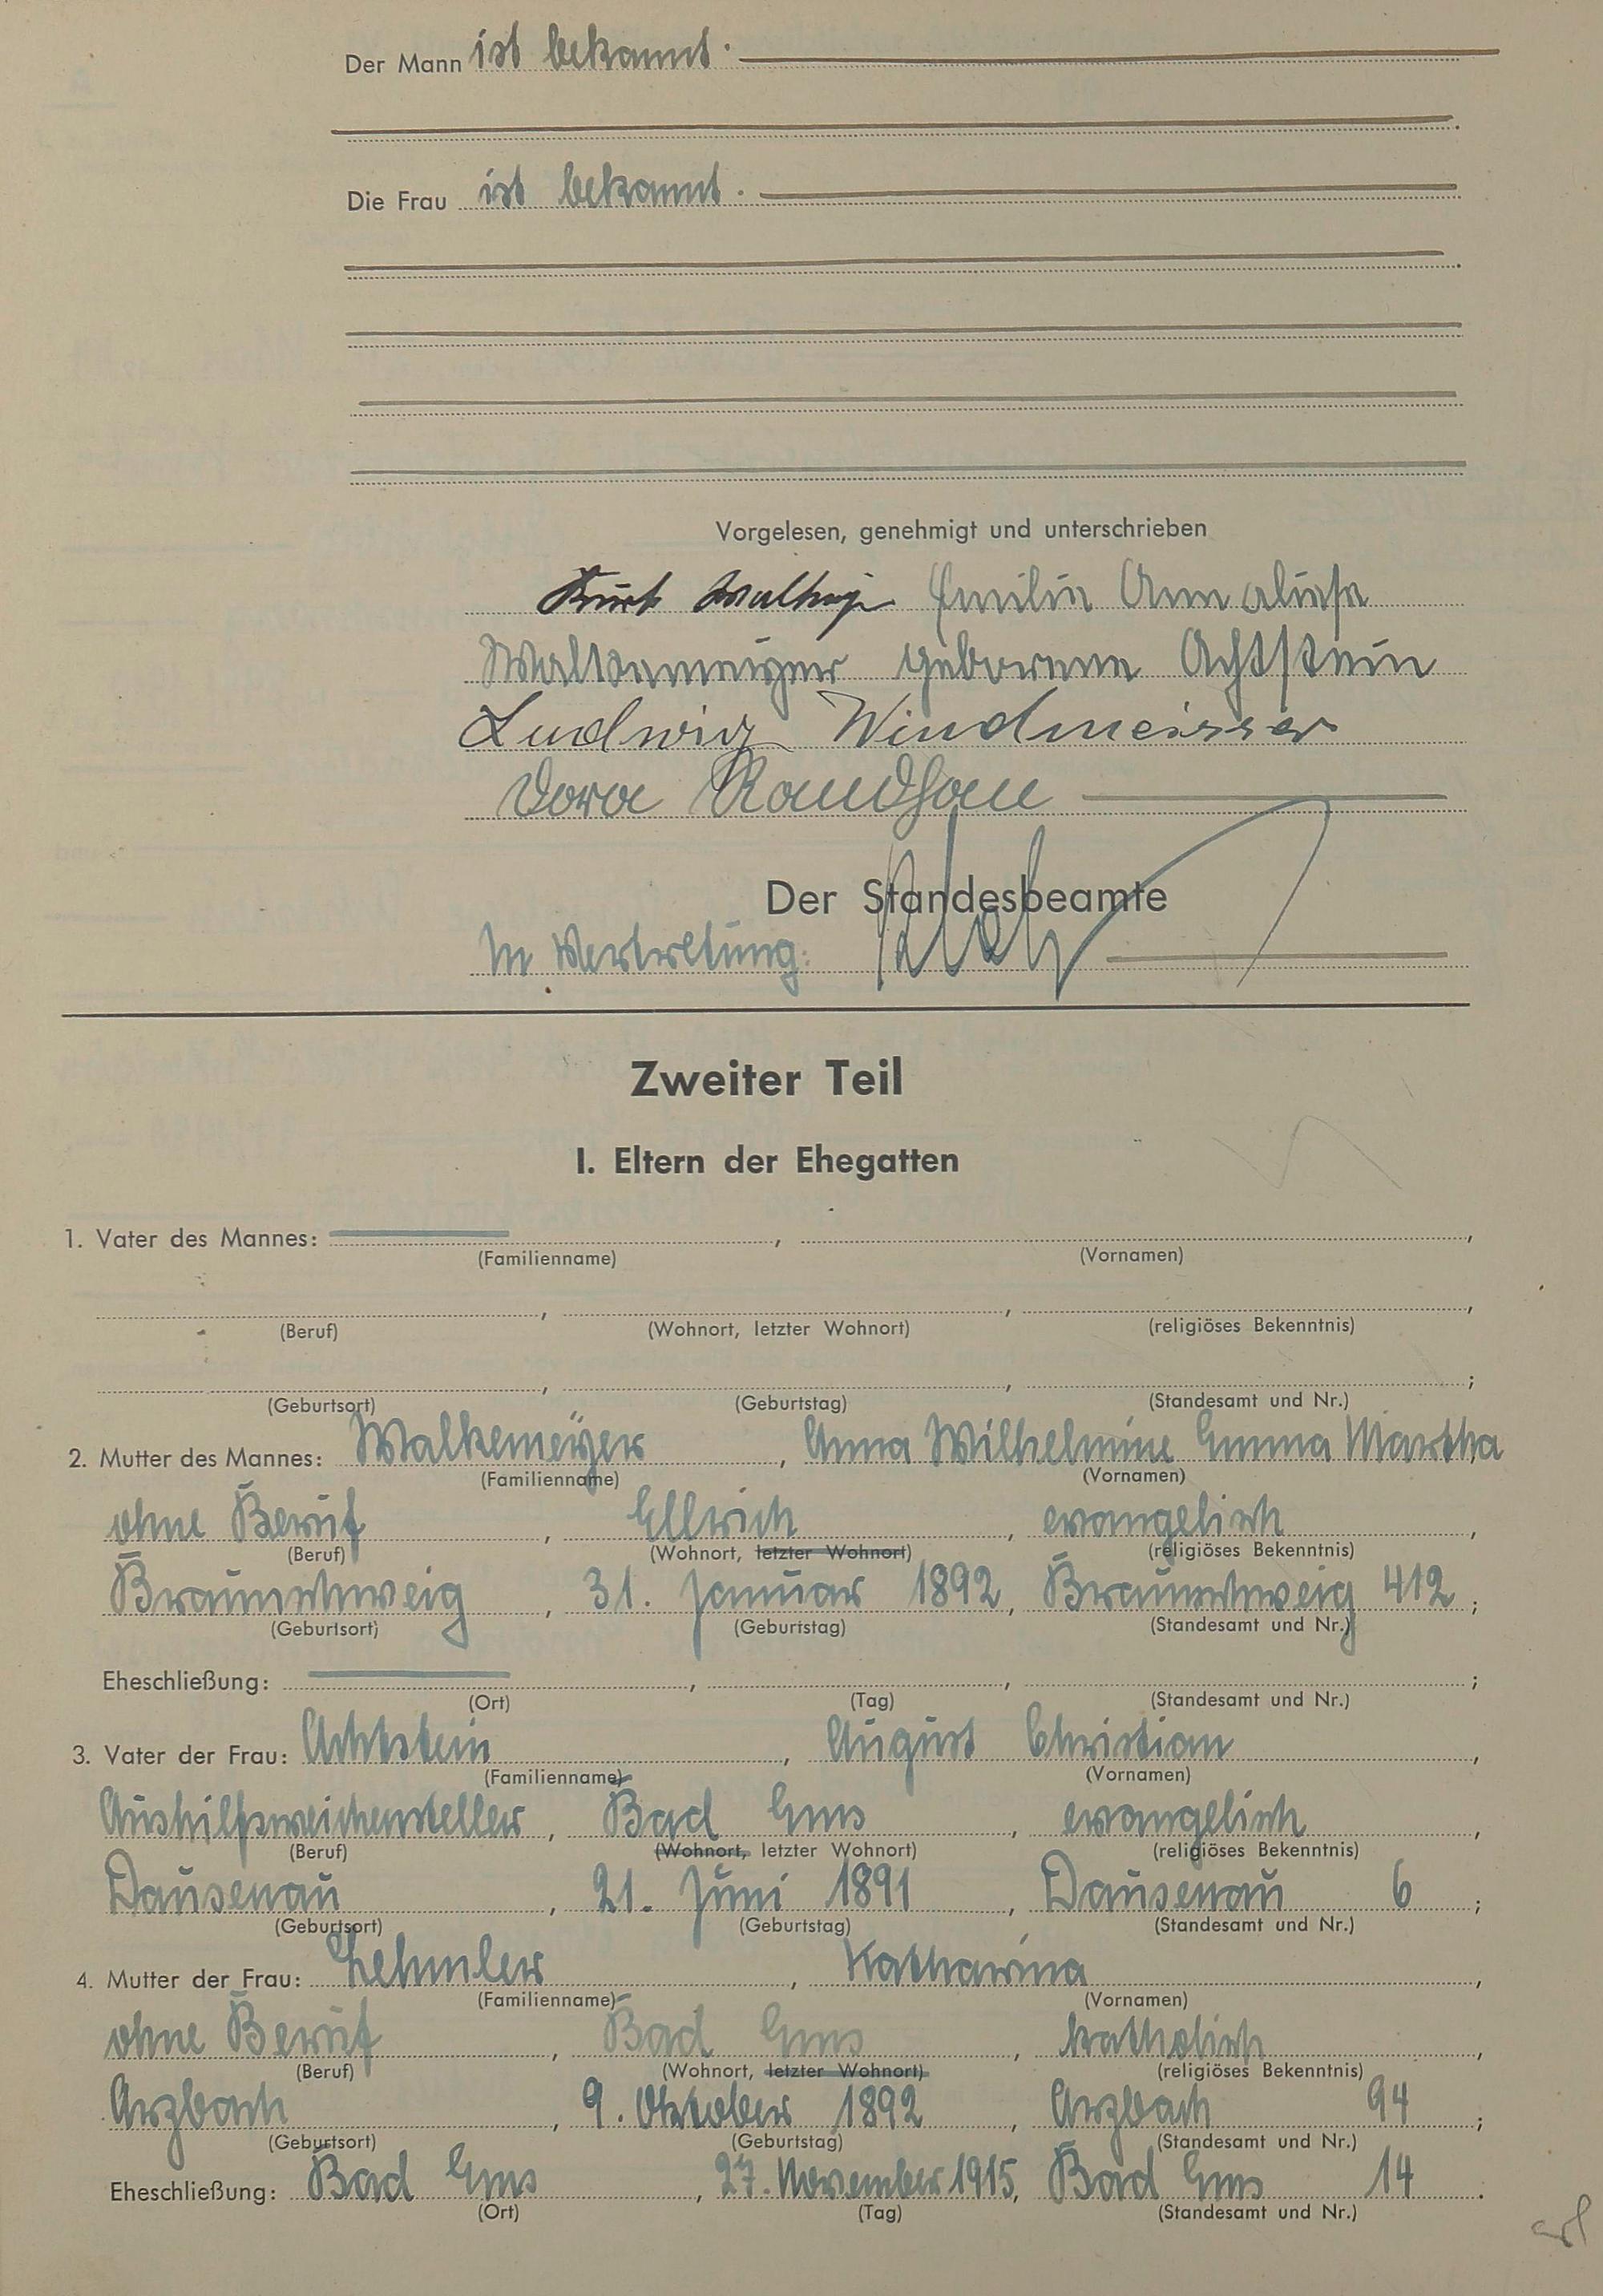 Der Mann ist bekannt.
Die Frau ist bekannt.
Vorgelesen, genehmigt und unterschrieben
Kurt Emilie Annaliese
Walkemeyer geborene Achtstein
Ludwig Windmeisser
Dora
Der Standesbeamte
In Vertretung:
Zweiter Teil
I. Eltern der Ehegatten
1. Vater des Mannes: , ,
(Familienname) (Vornamen)
, , ,
(Beruf) (Wohnort, letzter Wohnort) (religiöses Bekenntnis)
, , ;
(Geburtsort) (Geburtstag) (Standesamt und Nr.)
2. Mutter des Mannes: Walkemeyer, Anna Wilhelmine Emma Martha
(Familienname) (Vornamen)
ohne Beruf, Ellrich, evangelisch,
(Beruf) (Wohnort, letzter Wohnort) (religiöses Bekenntnis)
Braunschweig, 31. Januar 1892, Braunschweig 412;
(Geburtsort) (Geburtstag) (Standesamt und Nr.)
Eheschließung: , , ;
(Ort) (Tag) (Standesamt und Nr.)
3. Vater der Frau: Achtstein, August Christian,
(Familienname) (Vornamen)
Aushilfsweichensteller, Bad Ems, evangelisch,
(Beruf) (Wohnort, letzter Wohnort) (religiöses Bekenntnis)
Dausenau, 21. Juni 1891, Dausenau 6;
(Geburtsort) (Geburtstag) (Standesamt und Nr.)
4. Mutter der Frau: Lehmler, Katharina,
(Familienname) (Vornamen)
ohne Beruf, Bad Ems, katholisch,
(Beruf) (Wohnort, letzter Wohnort) (religiöses Bekenntnis)
Arzbach, 9. Oktober 1892, Arzbach 94;
(Geburtsort) (Geburtstag) (Standesamt und Nr.)
Eheschließung: Bad Ems, 27. November 1915, Bad Ems 14.
(Ort) (Tag) (Standesamt und Nr.)